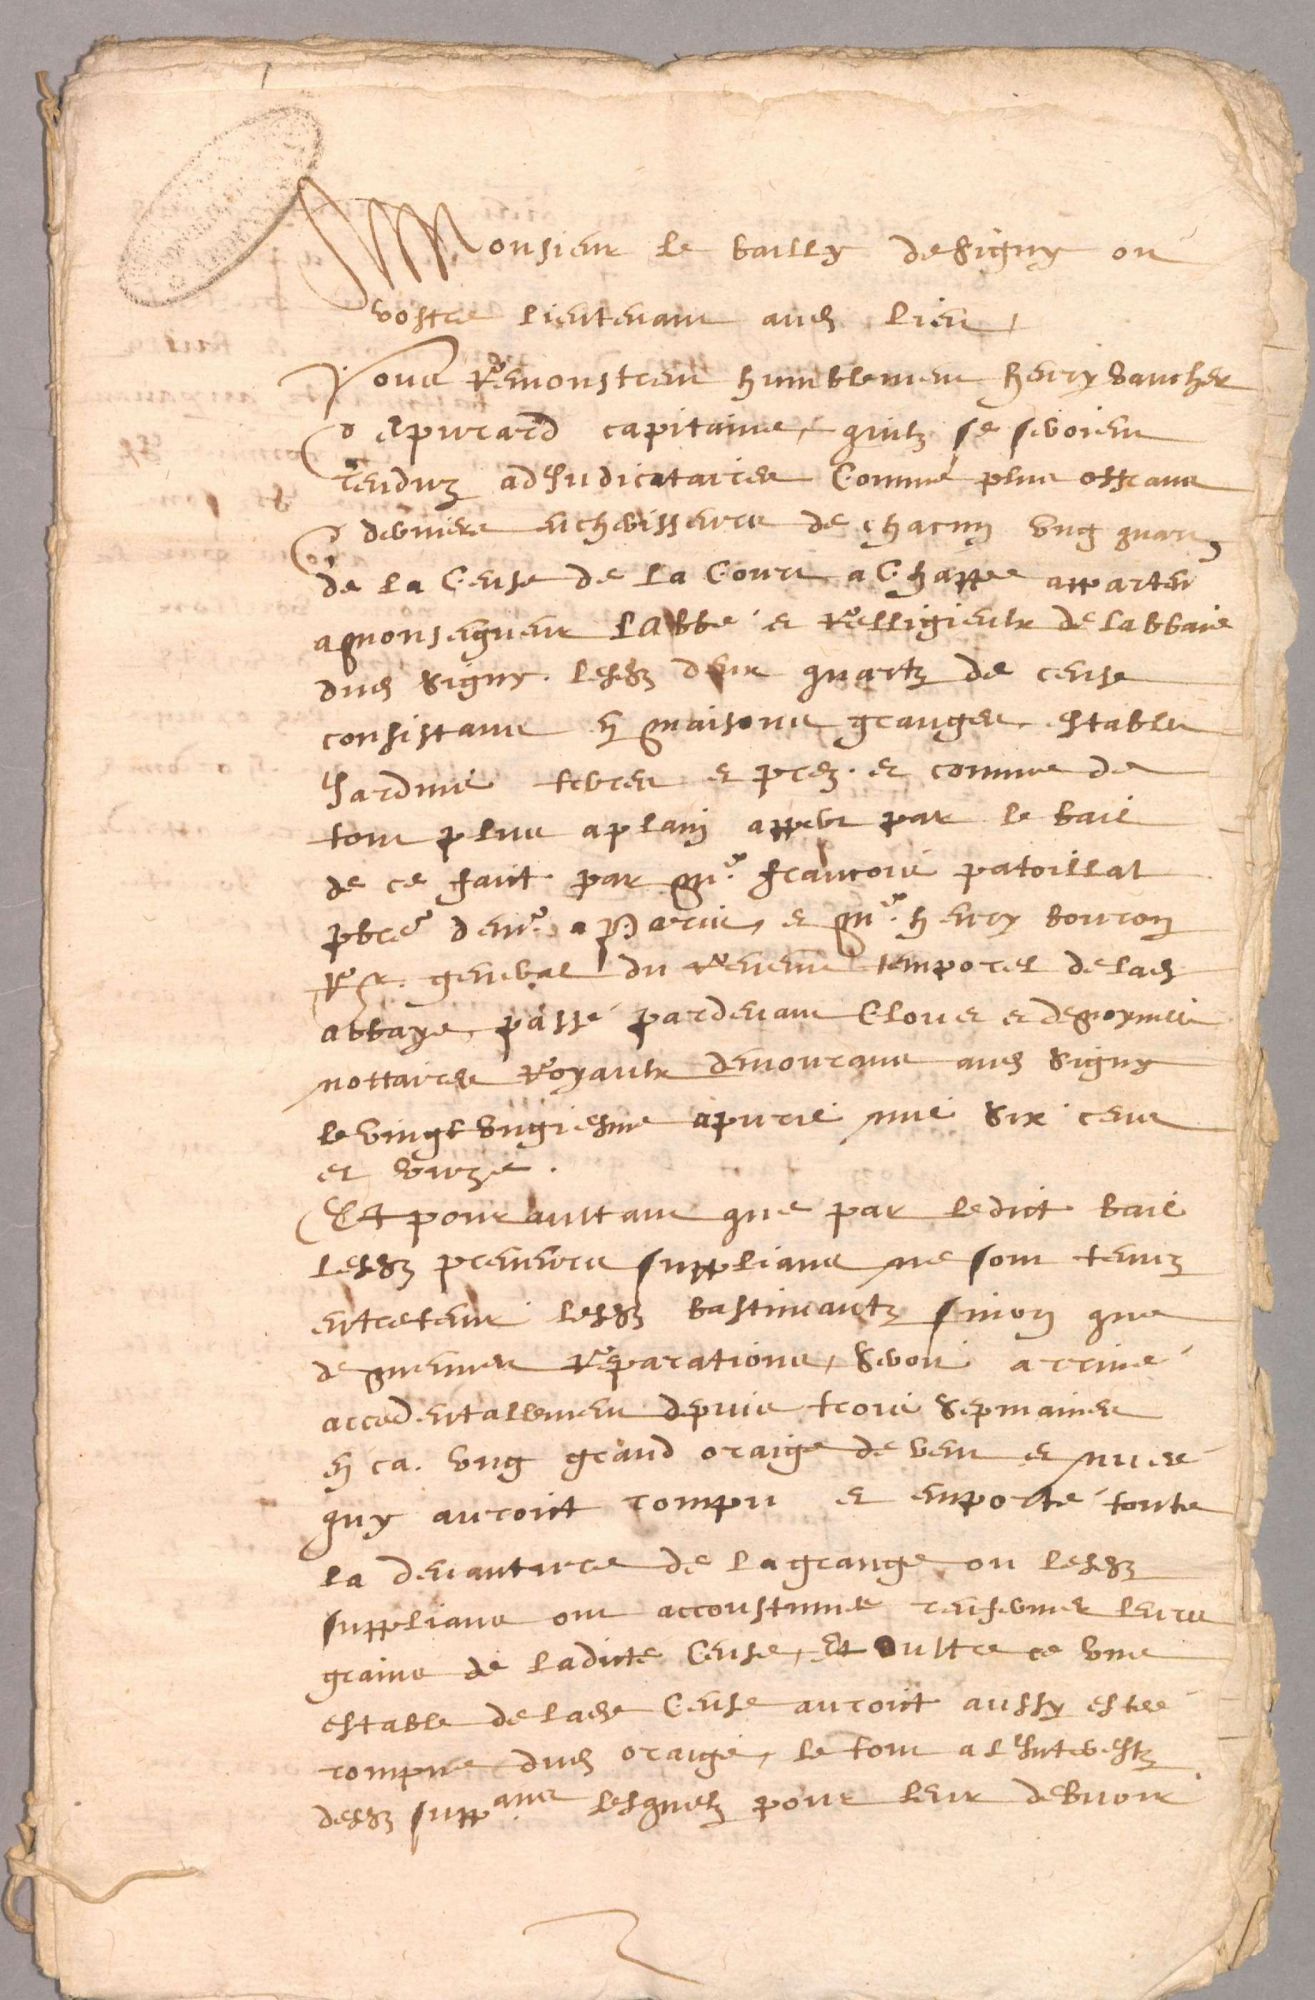 Monsieur le bailly de Signy ou
vostre lieutenant aud lieu,
Vous Remonstrent humblement Henry Vaucher
et capitaine, quilz se seroient
renduz adjudicataires comme plus offrans
et derniers encherisseurs de chacun ung quart
de la Cense de la Court a Chappe apparten
a monseigneur l'Abbé et Relligieulx de labbaie
dud Signy. lesdz deux quartz de cense
consistans en maisons granges estables
Jardins terres et prez. et comme de
tout plus a plain appert par le bail
de ce faict par Mr. Francois patoillat
pbre demt. a Paris, et Mr. Henry bouron
Rr. general du Revenu temporel de lad
abbaye, passé pardevant Clouet et
nottaires Royaulx demourans aud Signy
le vingt ungiesme apvril mil Six cens
et unze.
Et pour aultant que par ledict bail
lesdz preneurs supplians ne sont tenuz
entretenir lesdz bastimantz sinon que
de menues Reparations, Seroit arrivé
accidentallement depuis trois Sepmaines
en ca. ung grand oraige de vent et nuees
quy auroict rompu et emporté toute
la devanture de la grange ou lesdz
supplians ont accoustumé renfermer leurs
grains de ladicte Cense, Et oultre ce une
estable de lade Cense auroict aussy esté
rompue dud oraige, le tout a l'Interestz
desdz suppans lesquelz pour leur debvoir